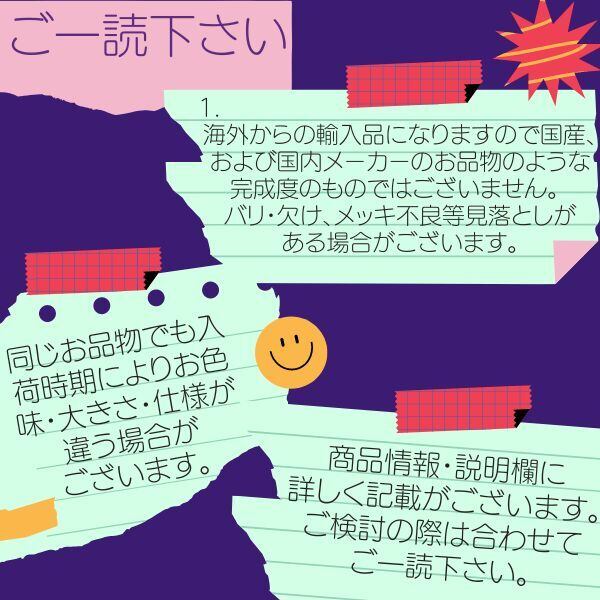 ご一読下さい
1.
海外からの輸入品になりますので国産、
および国内メーカーのお品物のような
完成度のものではございません。
バリ・欠け、メッキ不良等見落としが
ある場合がございます。
同じお品物でも入
荷時期によりお色
味・大きさ・仕様が
違う場合が
ございます。
商品情報・説明欄に
詳しく記載がございます。
ご検討の際は合わせて
ご一読下さい。